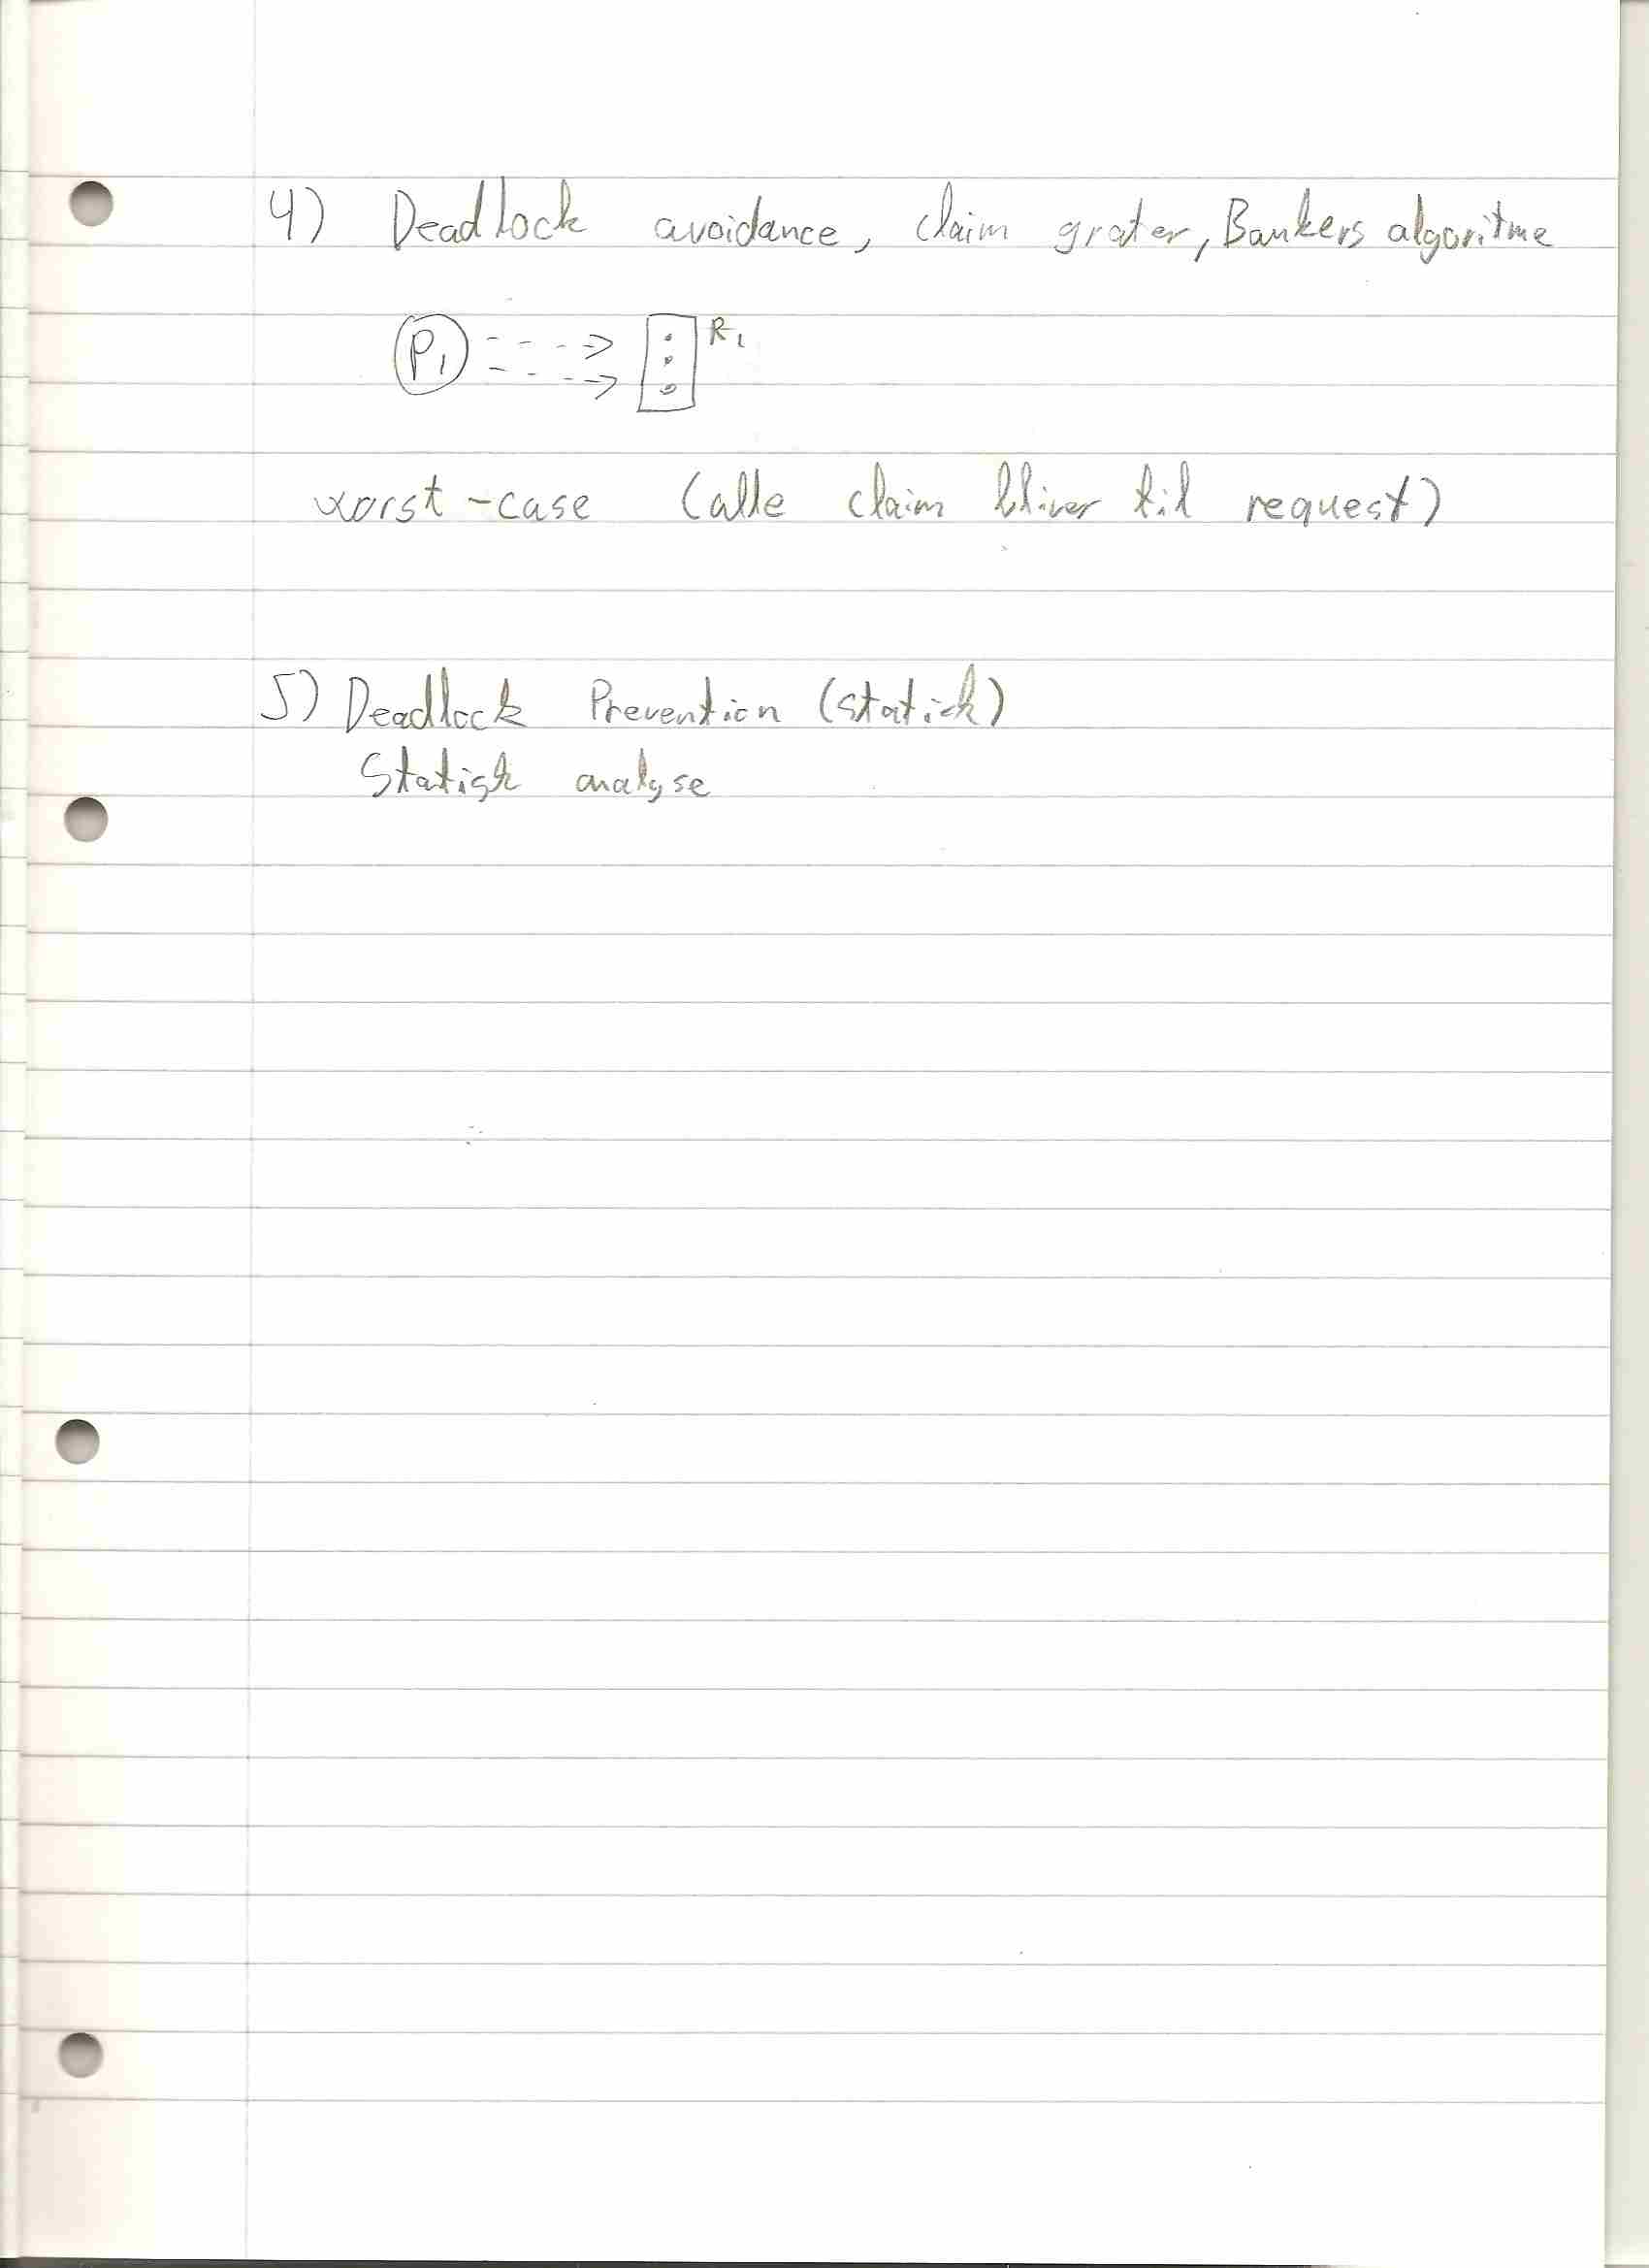 4) Deadlock avoidance, claim grafer, Bankers algoritme
P1 R1
worst-case (alle claim bliver til request)
5) Deadlock Prevention (statick)
Statisk analyse